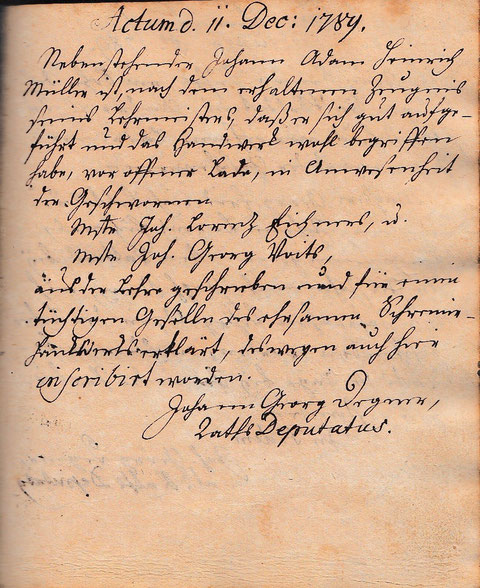 Actum d. 11. Dec: 1789.
Nebenstehender Johann Adam Heinrich
Müller ist, nach dem erhaltenen Zeugnis
seines Lehrmeisters, daß er sich gut aufge-
führt und das Handwerk wohl begriffen
habe, vor offener Lade, in Anwesenheit
der Geschwornen
Mstr Joh. Lorentz Eichners, u.
Mstr Joh. Georg Voits,
aus der Lehre geschrieben und für einen
tüchtigen Gesellen des ehrsamen Schreiner-
handwerks erklärt, deswegen auch hier
inscribirt worden.
Johann Georg Degner,
Raths Deputatus.